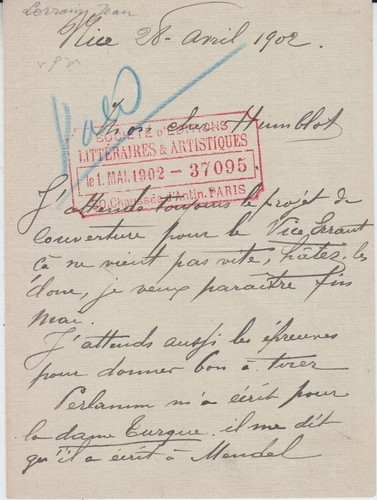 Lorrain Jean
Nice 28 avril 1902.
Mon cher Humblot
SOCIÉTÉ D'ÉDITIONS
LITTÉRAIRES & ARTISTIQUES
le 1. MAI. 1902 - 37095
50, Chaussée d'Antin. PARIS
J'attends toujours le projet de
couverture pour le Vice Errant
çà ne vient pas vite, hâtez. les
donc, je veux paraître fin
mai.
J'attends aussi les épreuves
pour donner bon à tirer
Perlamm m'a écrit pour
la dame Turque. il me dit
qu'il a écrit à Mendel